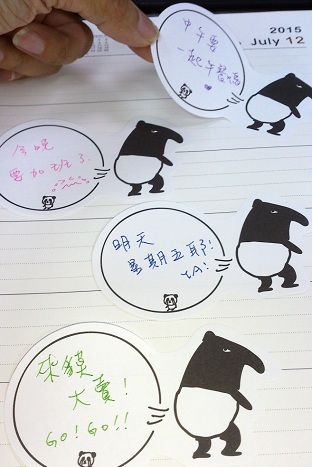 2015
July 12
中午要
一起午餐嗎
今晚
要加班了
明天
星期五耶!
YA!
來貘
大賣!
GO! GO!!